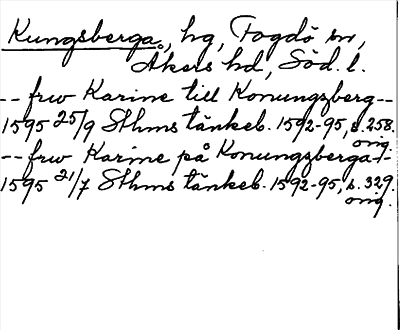 Kungsberga, hg, Fogdö sn,
Åkers hd, Söd. l.
-- frw Karine till Konungzberg--
1595 25/9 Sthms tänkeb. 1592-95, s. 258.
orig.
-- frw Karine på Konungzberga--
1595 21/7 Sthms tänkeb. 1592-95, s. 329.
orig.